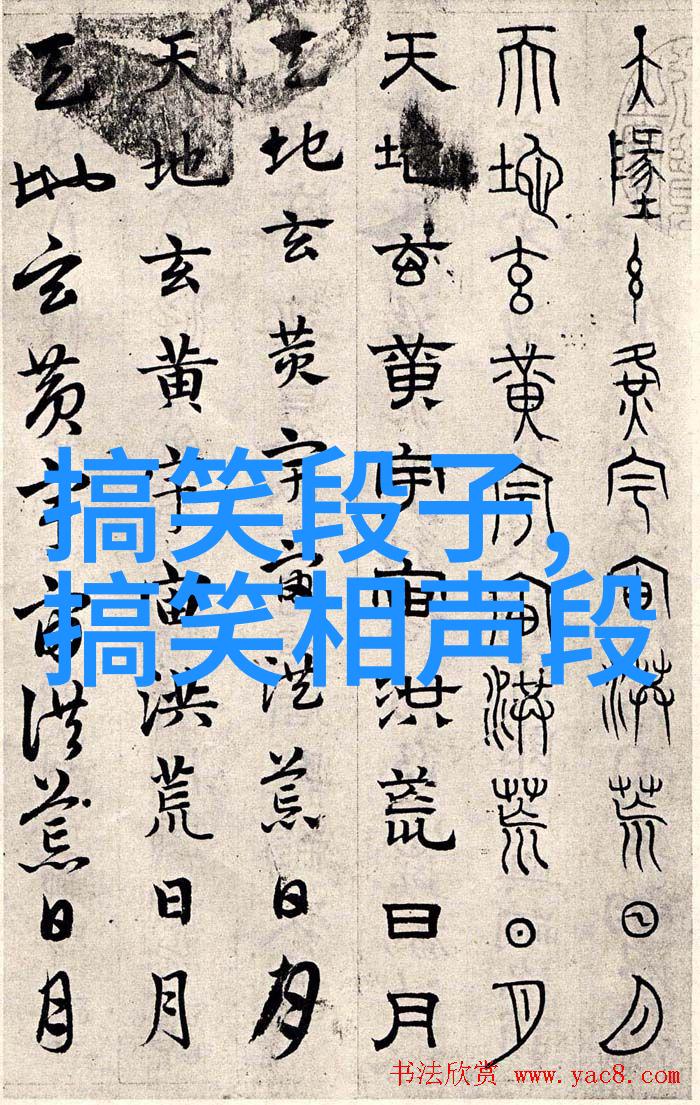 天墬玄黄宇宙洪荒日月
天地玄黄宇宙洪荒日月
天地玄黄宇宙洪荒日月
天地玄黄宇宙洪荒日月
天地玄黄宇宙洪荒日月
天地玄黄宇宙洪荒日月
搞笑段子,
搞笑相声段
书法欣赏 www.yac8.com